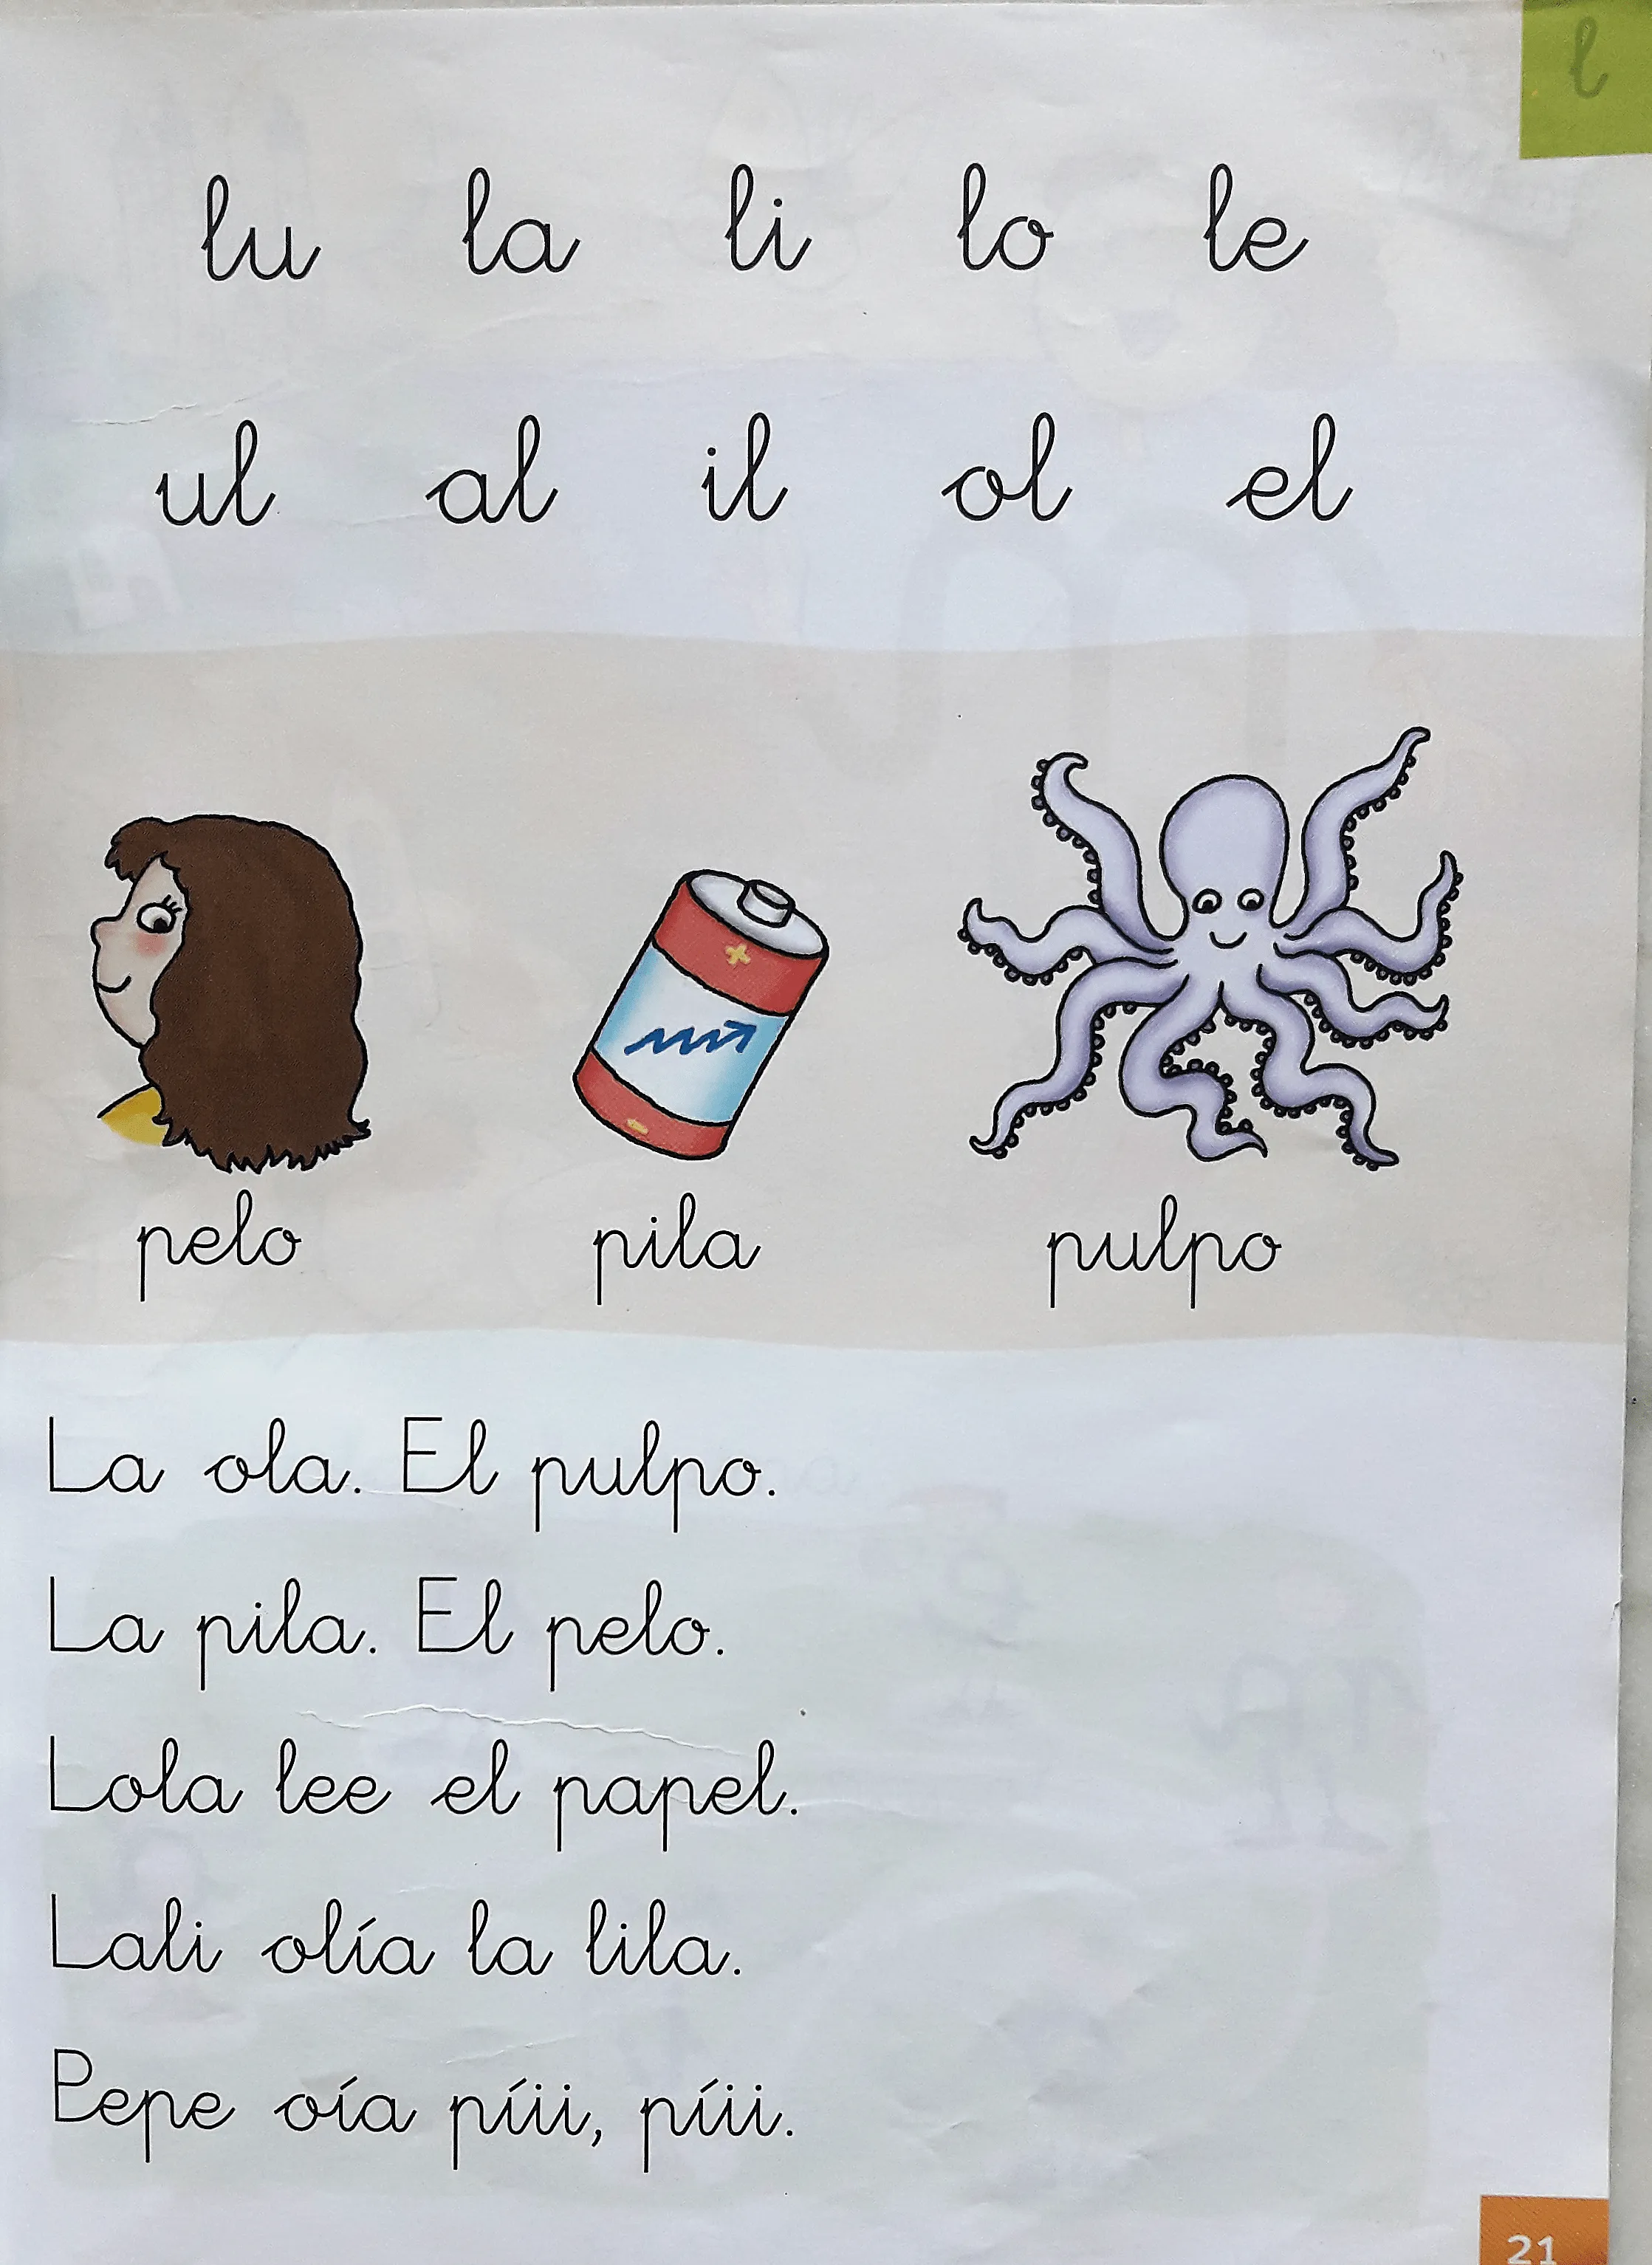 l
lu la li lo le
ul al il ol el
pelo pila pulpo
La ola. El pulpo.
La pila. El pelo.
Lola lee el papel.
Lali olía la lila.
Pepe oía píii, píii.
21